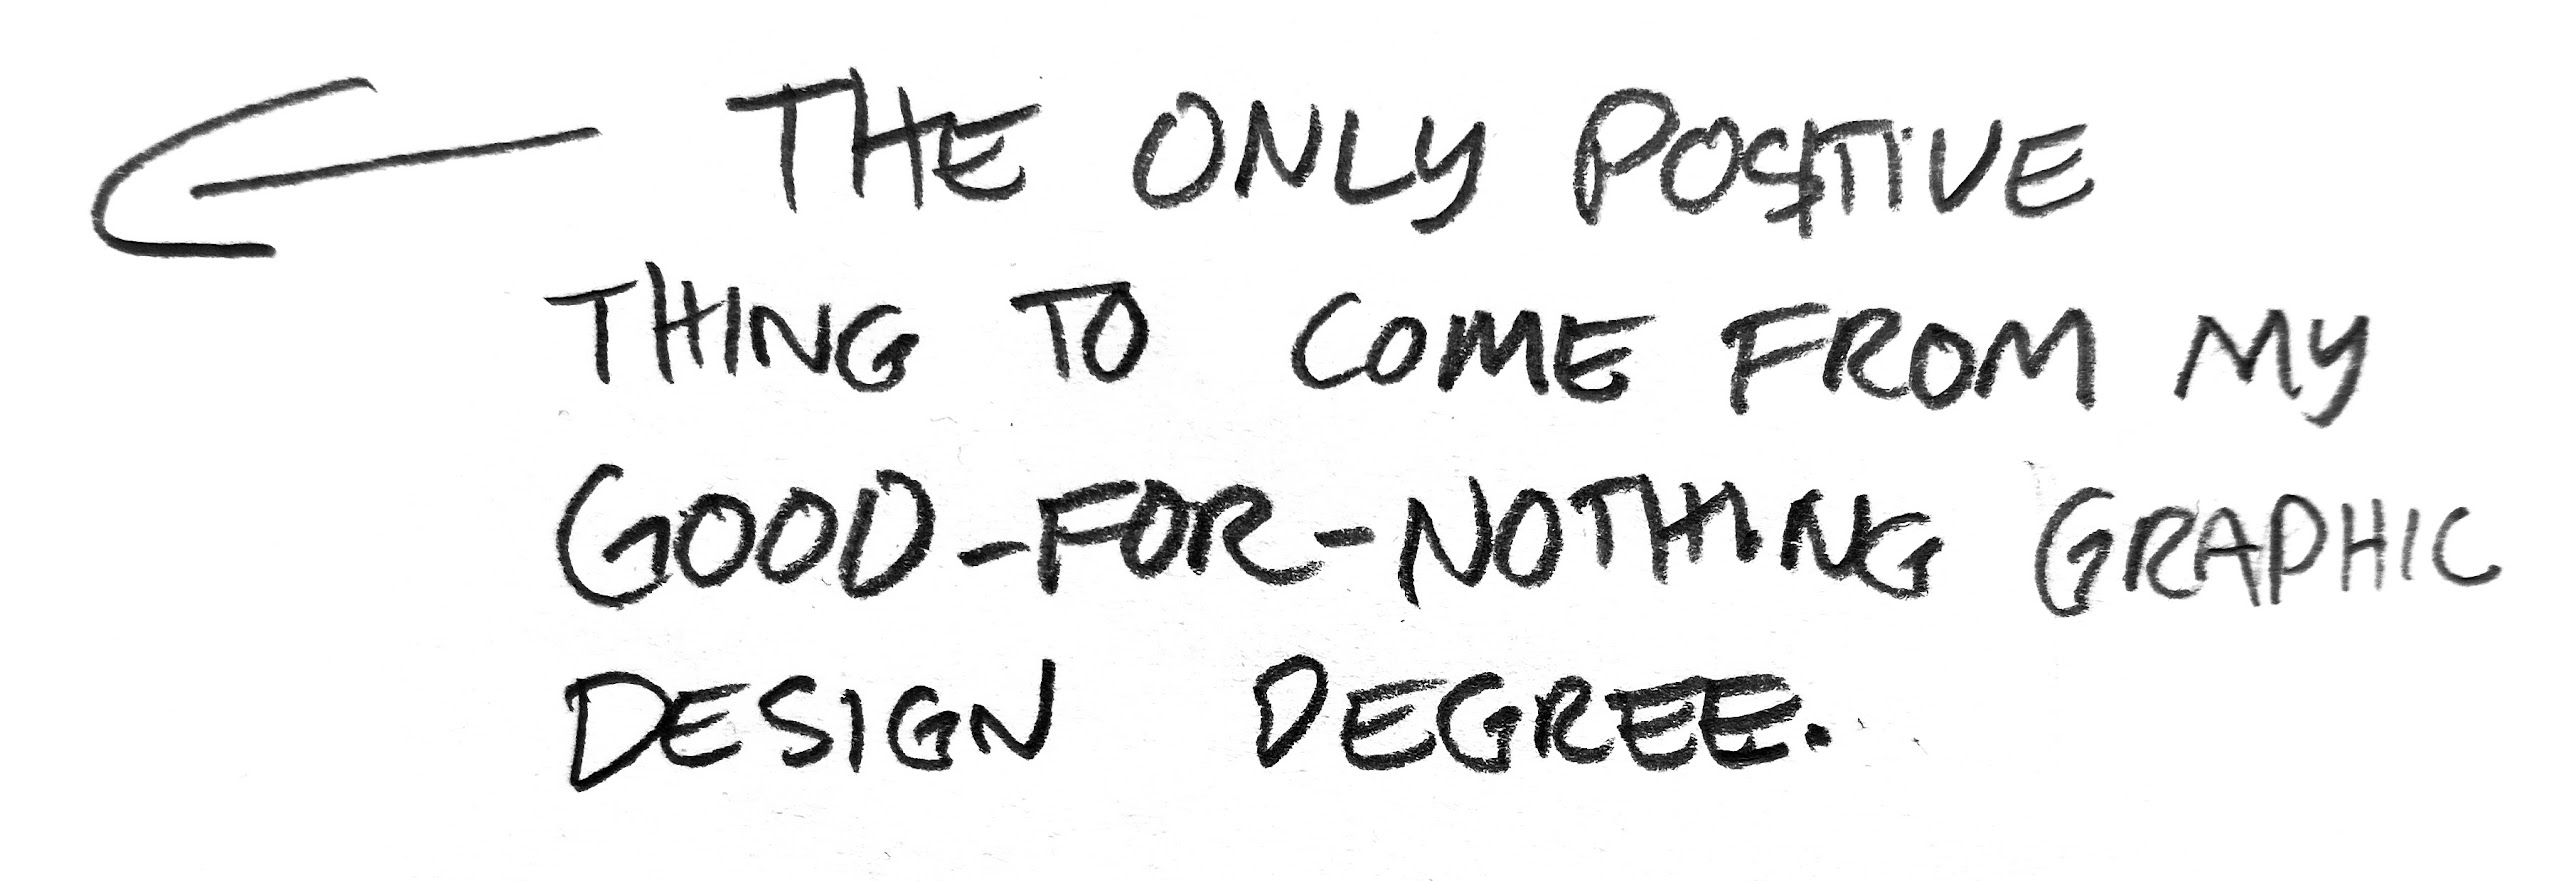 THE ONLY POSITIVE
THING TO COME FROM MY
GOOD-FOR-NOTHING GRAPHIC
DESIGN DEGREE.